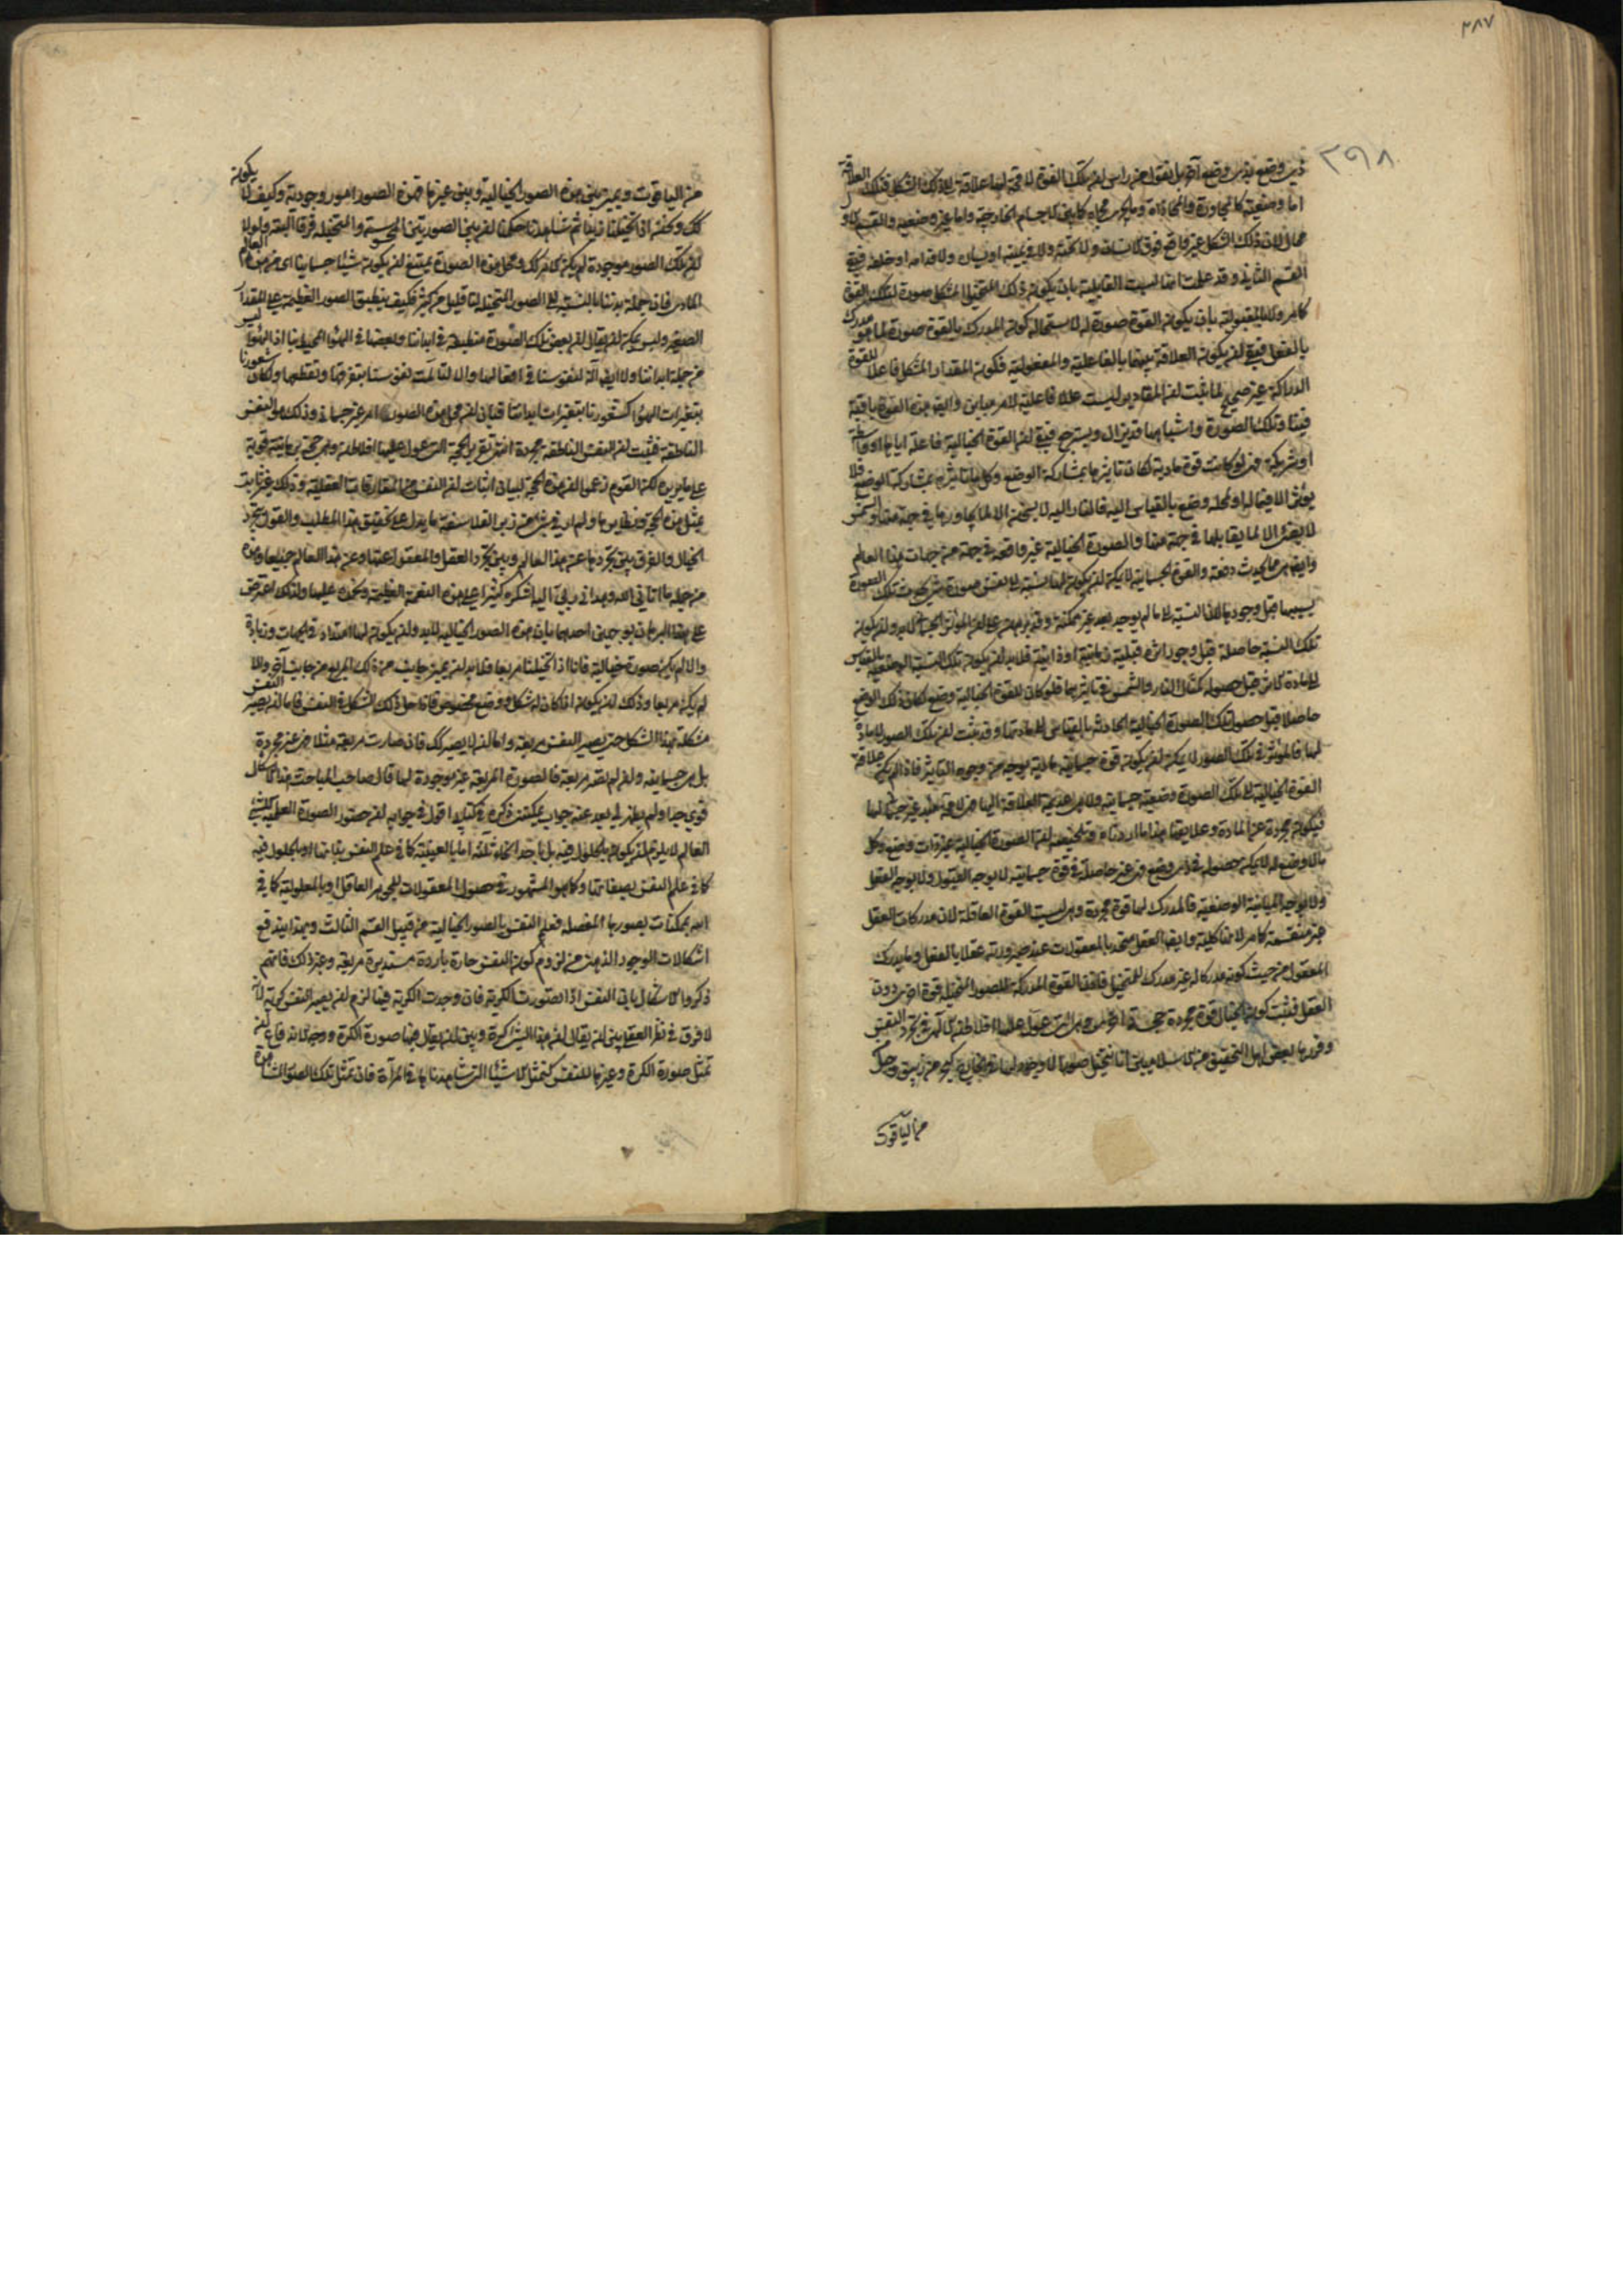 ٣٨٧
٣٩٨
اما وضعية كالمجاورة والمحاذاة وما يجرى مجراه كما بين الاجسام الخارجية واما غير وضعية والقسم الاول
محال لان ذلك الشكل غير واقع فوق الانسان ولا تحته ولا في يمينه او يساره ولا قدامه او خلفه فبقى
القسم الثانى وقد علمت انها ليست القابلية بان يكون ذلك المتخيل المشكل صورة لتلك القوة
كما مر ولا بالمقبولية بان يكون القوة صورة له لاستحالة كون المدرك بالقوة صورة لما هو مدرك
بالفعل فبقى ان يكون العلاقة بينهما بالفاعلية والمفعولية فكون المقدار المشكل فاعلا للقوة
الدراكة غير صحيح لما ثبت ان المقادير ليست عللا فاعلية لامر مباين وايضا هذه القوة باقية
فينا وتلك الصورة واشباهها قد يزال ويسترجع فبقى ان القوة الخيالية فاعلة اياها او واسطة
او شريكة فهى لو كانت قوة مادية لكان تاثيرها بمشاركة الوضع وكل ما تاثيره بمشاركة الوضع فلا
يؤثر الا فيما له او لمحله وضع بالقياس اليه فالنار لا يسخن الا لما يجاورها في جهة منها والشمس
لا يضىء الا لما يقابلها في جهة منها والصورة الخيالية غير واقعة في جهة من جهات هذا العالم
تلك النسبة حاصلة قبل وجود اثره قبلية زمانية او ذاتية فلا بد ان يكون تلك النسبة الوضعية بالقياس
الى المادة كائن قبل حصوله كمثال النار والشمس في تاثيرهما فلو كان للقوة الخيالية وضع لكان ذلك الوضع
حاصلا قبل حصول تلك الصورة الخيالية الحادثة بالقياس الى مادتها وقد ثبت ان تلك الصور لا مادة
لها فالمؤثر في تلك الصور لا يمكن ان يكون قوة جسمانية مادية بوجه من وجوه التاثير فاذا لم يكن علاقة
القوة الخيالية الى تلك الصورة وضعية جسمانية
فيكون مجردة عن المادة وعلايقها هذا ما اردناه وتلخيصه ان الصورة الخيالية غير ذات وضع وكل
ما لا وضع له لا يمكن حصوله في ذى وضع فهى غير حاصلة في قوة جسمانية لا بوجه القبول ولا بوجه الفعل
ولا بوجه المباينة الوضعية فالمدرك لها قوة مجردة وهى ليست القوة العاقلة لان مدركات العقل
غير منقسمة كما مر لانها كلية وايضا العقل متحد بالمعقولات عند صيرورته عقلا بالفعل وما يدرك
المعقول من حيث كونه مدركا له غير مدرك للمتخيل فاذن القوة المدركة للصور المتخيلة قوة اخرى دون
العقل فثبت كون الخيال قوة مجردة حجة اخرى وهى التى عول عليها افلاطن الالهى في تجرد النفس
وقررها بعض اهل التحقيق من الاسلاميين انا نتخيل صورا لا وجود لها في الخارج كبحر من زيبق وجبل
من الياقوت
من الياقوت ويميز بين هذه الصور الخيالية وبين غيرها فهذه الصور امور وجودية وكيف لا يكون
كك ونحن اذا تخيلنا زيدا ثم شاهدناه حكمنا ان بين الصورتين المحسوسة والمتخيلة فرقا البتة ولولا
ان تلك الصور موجودة لم يكن الامر كك ومحل هذه الصورة يمتنع ان يكون شيئا جسمانيا اى من هذا العالم
المادى فان جملة بدننا بالنسبة الى الصور المتخيلة لنا قليل من كثير فكيف ينطبق الصور العظيمة على المقدار
الصغير وليس يمكن ان يقال ان بعض تلك الصورة منطبعة في ابداننا وبعضها في الهواء المحيط بنا اذ الهواء ليس
من جملة ابداننا ولا ايضا آلة لنفوسنا في افعالها والا لتألمت نفوسنا بتفرقها وتقطيعها ولكان شعورنا
بتغيرات الهواء كشعورنا بتغيرات ابداننا فبان ان محل هذه الصورة امر غير جسمانى وذلك هو النفس
الناطقة فثبت ان النفس الناطقة مجردة انتهى تقرير الحجة التى عول عليها افلاطن وهى حجة برهانية قوية
على ما يزيده لكن القوم زعموا ان هذه الحجة لبيان اثبات ان النفس من المفارقات العقلية وذلك غير ثابت
بمثل هذه الحجة ونظايرها ولم ار في شىء من زبر الفلاسفة ما يدل على تحقيق هذا المطلب والقول بتجرد
الخيال والفرق بين تجردها عن هذا العالم وبين تجرد العقل والمعقول عنها وعن هذا العالم جميعا وهذه
من جملة ما آتانى الله وهدانى ربى اليه اشكره كثيرا على هذه النعمة العظيمة ونحمده عليها ولذلك اعترض
على هذا البرهان بوجهين احدهما بان هذه الصور الخيالية لا بد وان يكون لها امتداد في الجهات وزيادة
والا لم يكن صورة خيالية فانا اذا تخيلنا مربعا فلا بد ان يميز جانب من ذلك المربع من جانب آخر والا
لم يكن مربعا وذلك ان يكون اذا كان له شكل ووضع مخصوص فاذا حل ذلك الشكل في النفس فاما ان يصير النفس
مشكلة بهذا الشكل حتى يصير النفس مربعة واما ان لا يصير كك فان صارت مربعة مثلا فهى غير مجردة
بل هى جسمانية وان لم تصر مربعة فالصورة المربعة غير موجودة لها قال صاحب المباحث هذا الاشكال
قوى جدا ولم يظهر لى بعد عنه جواب يمكننى ذكره في كتابه اقول في جوابه ان حضور الصورة العلمية للشىء
العالم لا يلزم ان يكون بالحلول فيه بل باحد انحاء ثلثة اما بالعينية كما في علم النفس بذاتها او بالحلول فيه
كما في علم النفس بصفاتها وكما هو المشهور في حصول المعقولات للجوهر العاقل او بالمعلولية كما في
الله بممكنات بصورها المفصلة فعلم النفس بالصور الخيالية من قبيل القسم الثالث وبهذا يندفع
اشكالات الوجود الذهنى من لزوم كون النفس حارة باردة مستديرة مربعة وغير ذلك فانهم
ذكروا الاشكال بان النفس اذا تصورت الكرية فان وجدت الكرية فيها لزم ان يصير النفس كرية لانه
لا فرق في نظر العقل بين ان يقال ان هذا الشىء كرة وبين ان يقال فيها صورة الكرة
تمثل صورة الكرة وغيرها للنفس كتمثل الاشياء التى شاهدناها في المرآة فان تمثل تلك الصور